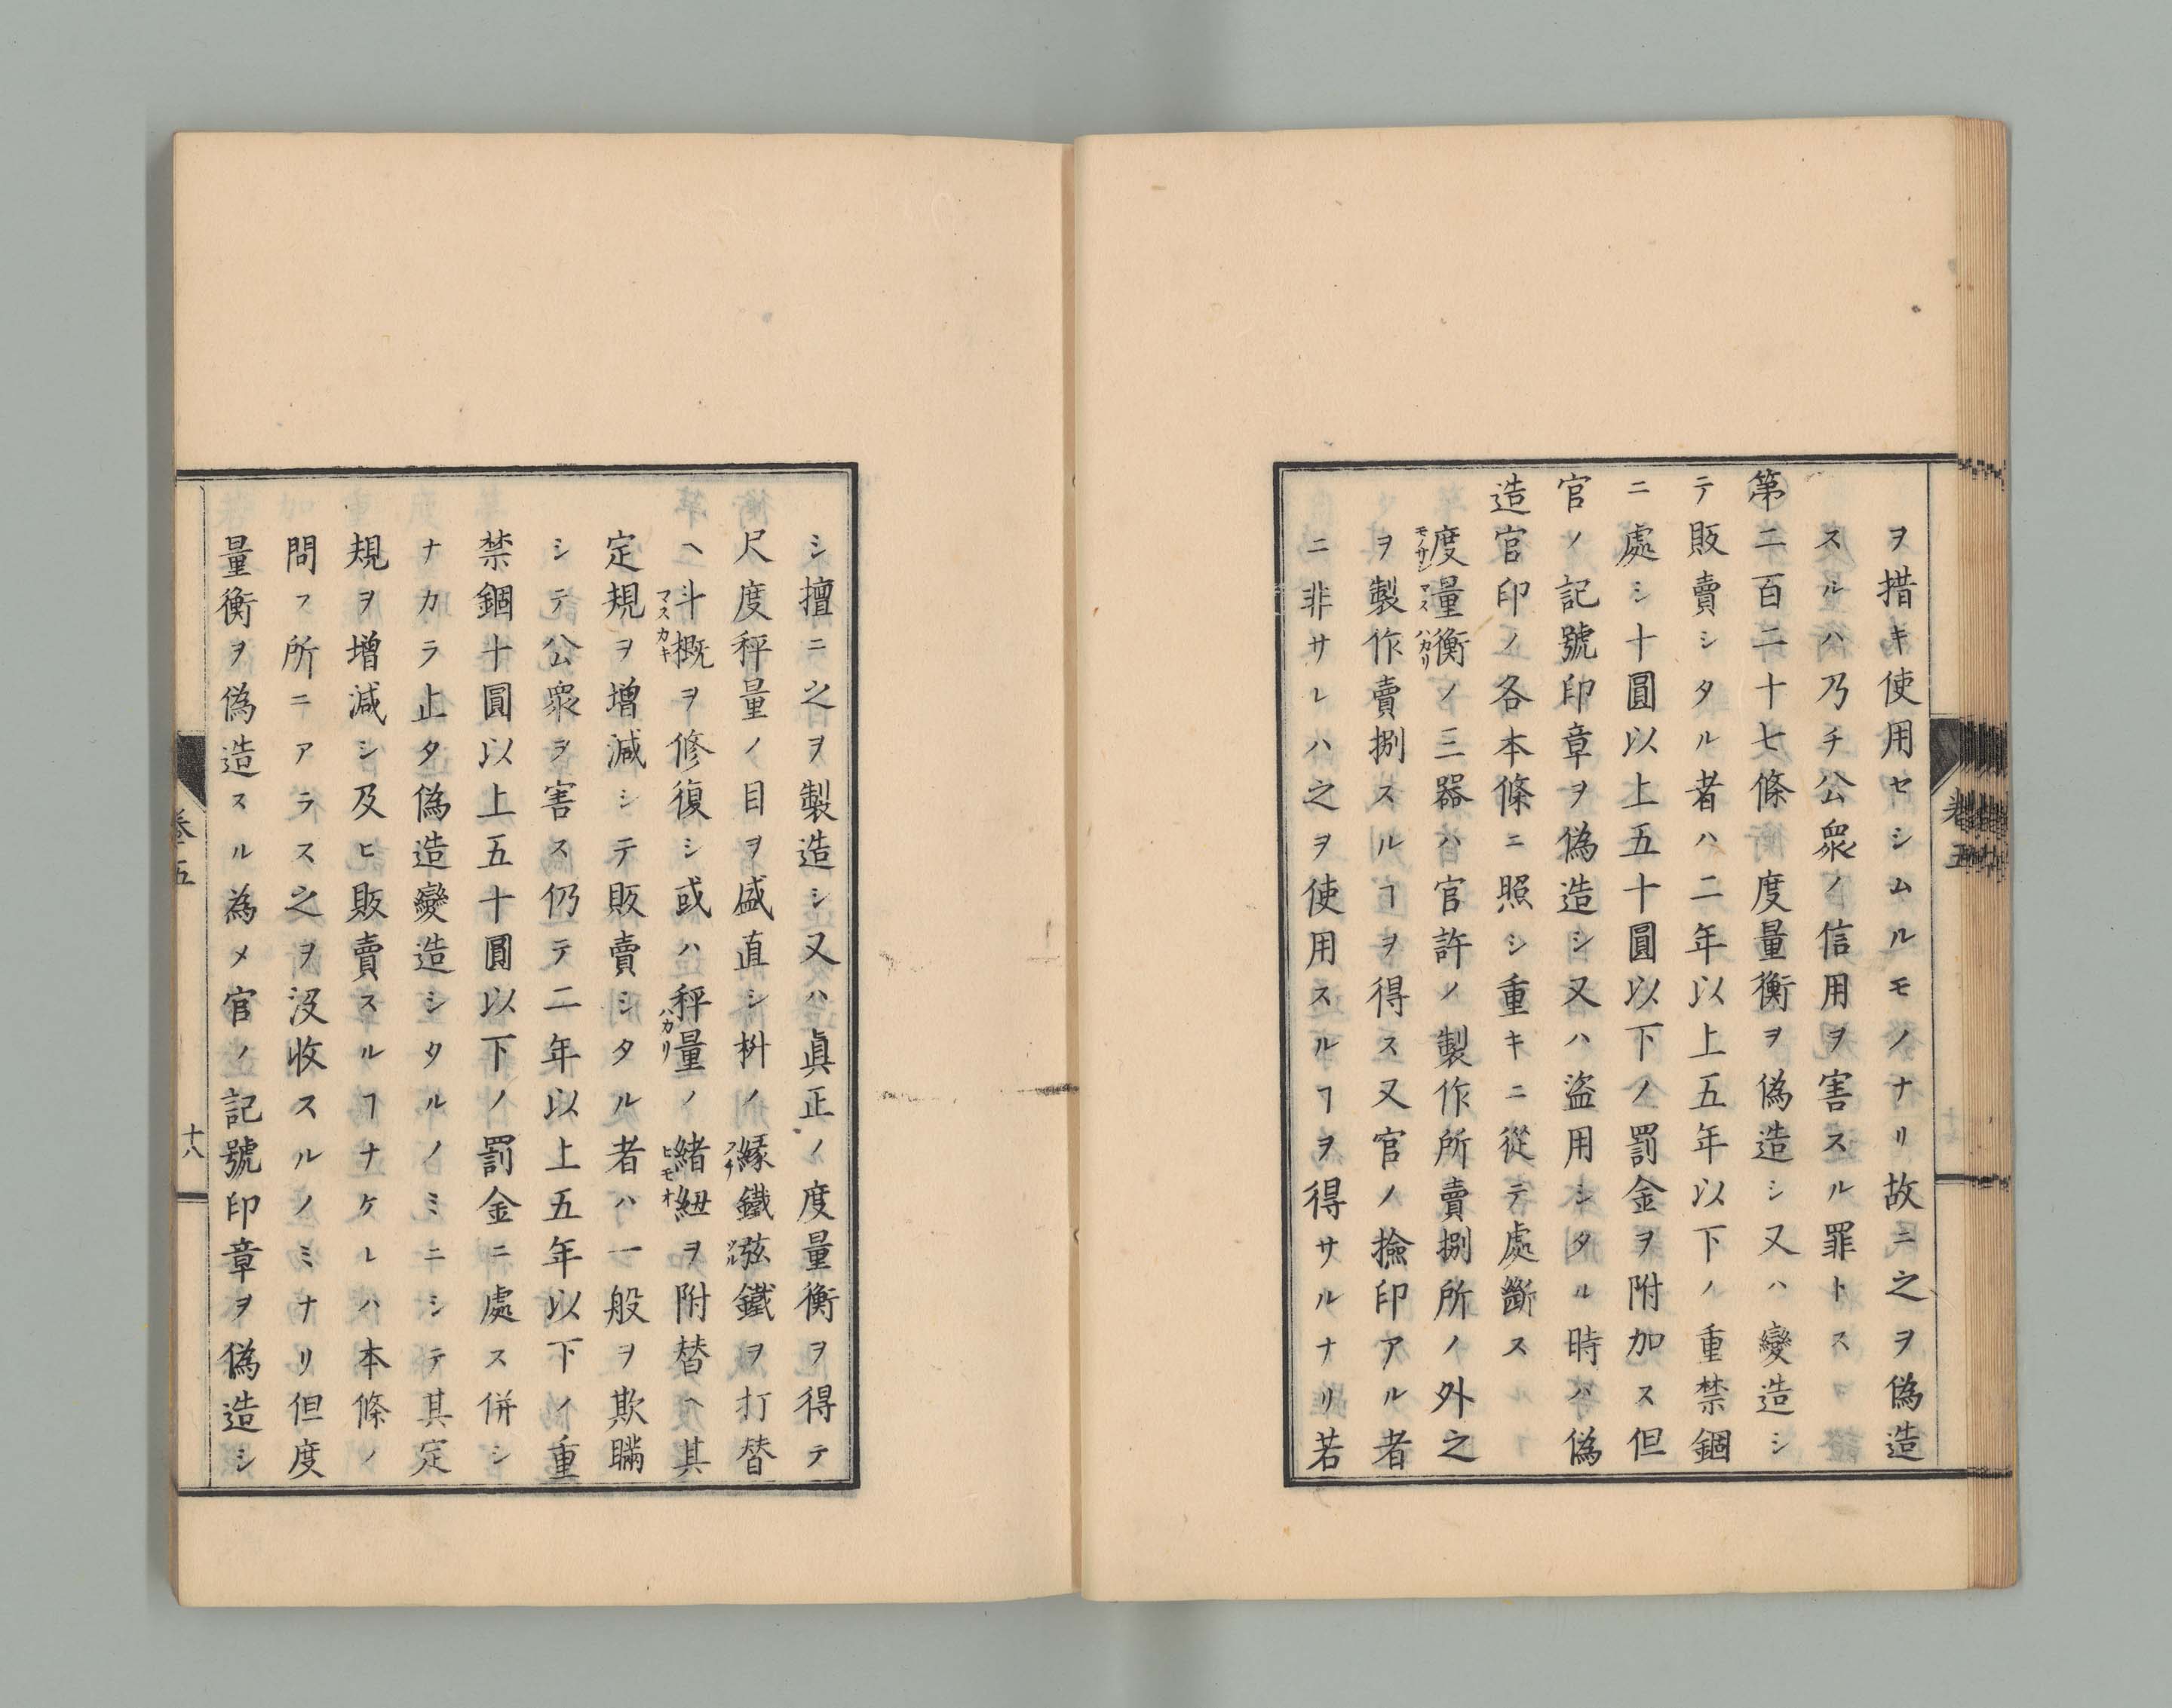 ヲ措キ使用セシムルモノナリ故ニ之ヲ偽造
スルハ乃チ公衆ノ信用ヲ害スル罪トス
第二百二十七條 度量衡ヲ偽造シ又ハ變造シ
テ販賣シタル者ハ二年以上五年以下ノ重禁錮
ニ處シ十圓以上五十圓以下ノ罰金ヲ附加ス但
官ノ記號印章ヲ偽造シ又ハ盜用シタル時ハ偽
造官印ノ各本條ニ照シ重キニ從テ處斷ス
度量衡ノ三器ハ官許ノ製作所賣捌所ノ外之
モノサシ マス ハカリ
ヲ製作賣捌スルヿヲ得ス又官ノ撿印アル者
ニ非サレハ之ヲ使用スルヿヲ得サルナリ若
卷五
シ擅ニ之ヲ製造シ又ハ眞正ノ度量衡ヲ得テ
尺度秤量ノ目ヲ盛直シ枡ノ縁鐵弦鐵ヲ打替
フチ ツル
ヘ斗概ヲ修復シ或ハ秤量ノ緒紐ヲ附替ヘ其
マスカキ ハカリ ヒモオ
定規ヲ增減シテ販賣シタル者ハ一般ヲ欺瞞
シテ公衆ヲ害ス仍テ二年以上五年以下ノ重
禁錮十圓以上五十圓以下ノ罰金ニ處ス併シ
ナカラ止タ偽造變造シタルノミニシテ其定
規ヲ增減シ及ヒ販賣スルヿナケレハ本條ノ
問フ所ニアラス之ヲ沒收スルノミナリ但度
量衡ヲ偽造スル為メ官ノ記號印章ヲ偽造シ
卷五
十八